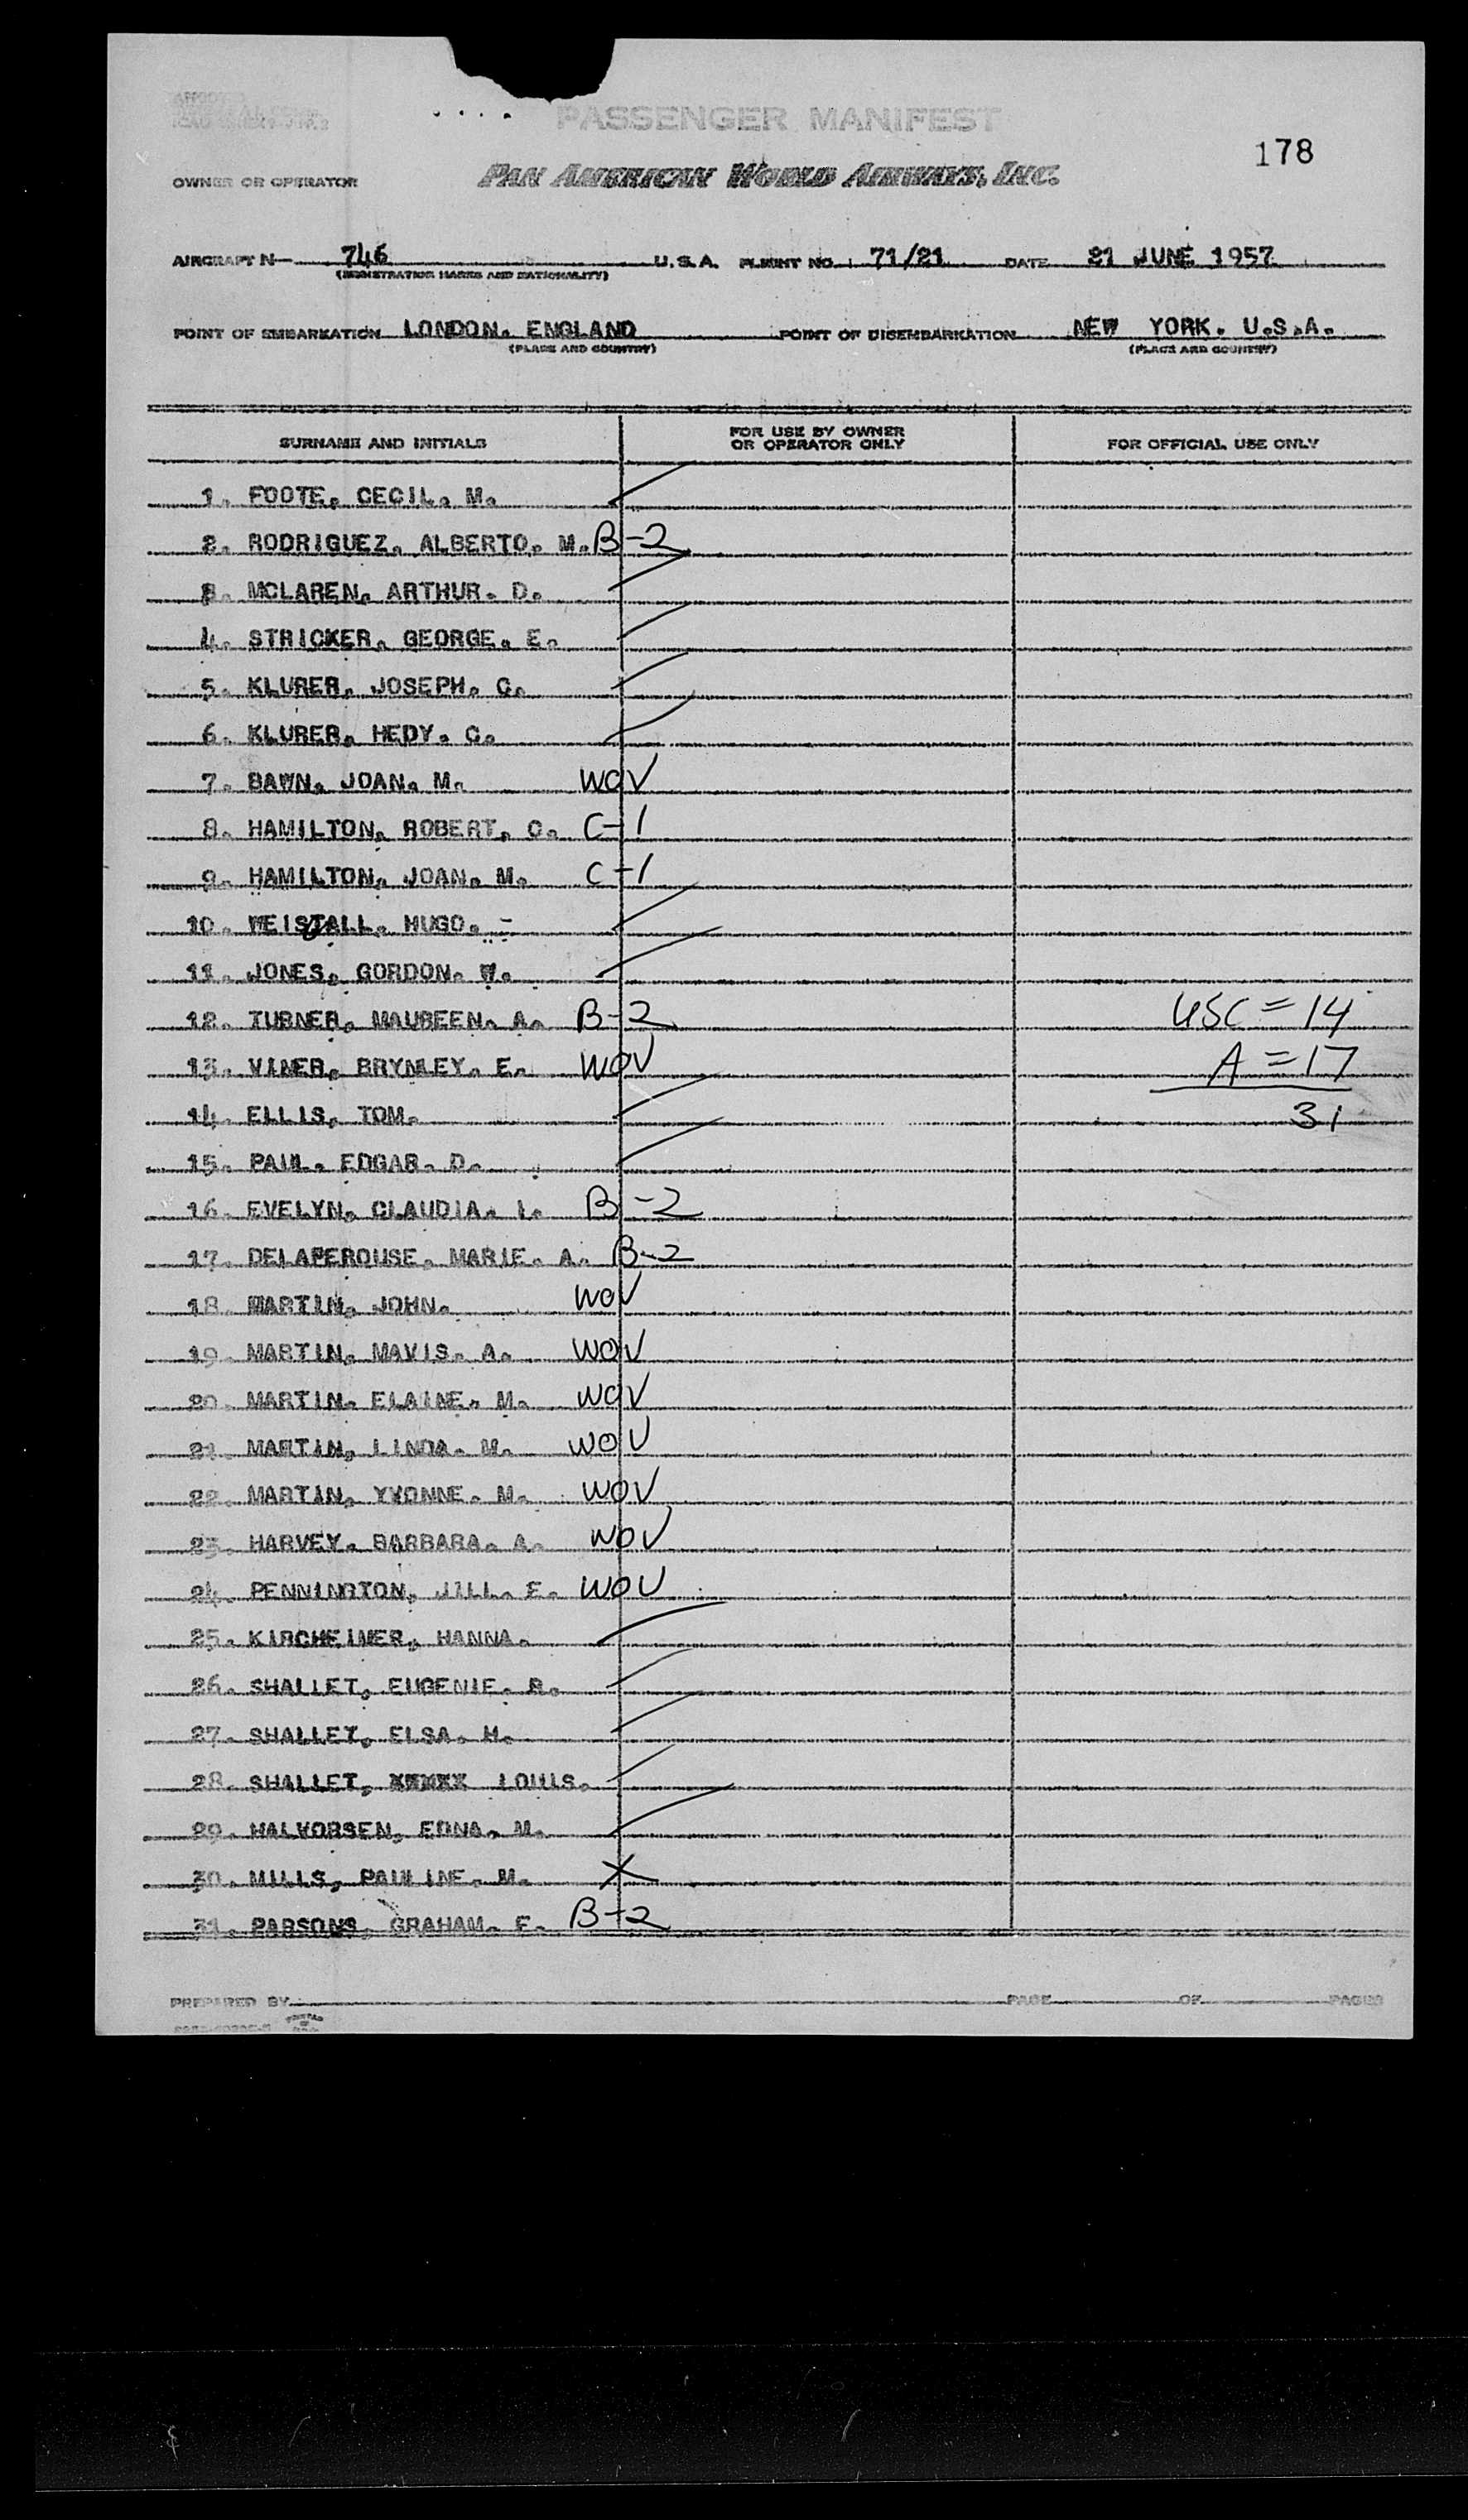 PASSENGER MANIFEST
178
OWNER OR OPERATOR PAN AMERICAN WORLD AIRWAYS, INC.
AIRCRAFT N— 746 U.S.A. FLIGHT NO. 71/21 DATE 21 JUNE 1957
(REGISTRATION MARKS AND NATIONALITY)
POINT OF EMBARKATION LONDON. ENGLAND POINT OF DISEMBARKATION NEW YORK. U.S.A.
(PLACE AND COUNTRY) (PLACE AND COUNTRY)
SURNAME AND INITIALS FOR USE BY OWNER OR OPERATOR ONLY FOR OFFICIAL USE ONLY
1. FOOTE, CECIL. M.
2. RODRIGUEZ. ALBERTO. M. B-2
3. MCLAREN, ARTHUR. D.
4. STRICKER, GEORGE. E.
5. KLURER, JOSEPH. C.
6. KLURER, HEDY. C.
7. BAWN, JOAN. M. WOV
8. HAMILTON, ROBERT. C. C-1
9. HAMILTON, JOAN. M. C-1
10. WEISGALL, HUGO. -
11. JONES, GORDON. W.
12. TURNER, MAUREEN. A. B-2 USC = 14
13. VINER, BRYNLEY. E. WOV A = 17
14. ELLIS, TOM. 31
15. PAUL. EDGAR. D.
16. EVELYN, CLAUDIA. I. B-2
17. DELAPEROUSE, MARIE. A. B-2
18. MARTIN, JOHN. WOV
19. MARTIN, MAVIS. A. WOV
20. MARTIN, ELAINE. M. WOV
21. MARTIN, LINDA. M. WOV
22. MARTIN, YVONNE. M. WOV
23. HARVEY. BARBARA. A. WOV
24. PENNINGTON, JILL. E. WOV
25. KIRCHEIMER, HANNA.
26. SHALLET, EUGENIE. R.
27. SHALLET, ELSA. H.
28. SHALLET, XXXXX LOUIS.
29. HALVORSEN, EDNA. M.
30. MILLS, PAULINE. M. X
31. PARSONS, GRAHAM. E. B-2
PREPARED BY PAGE OF PAGES